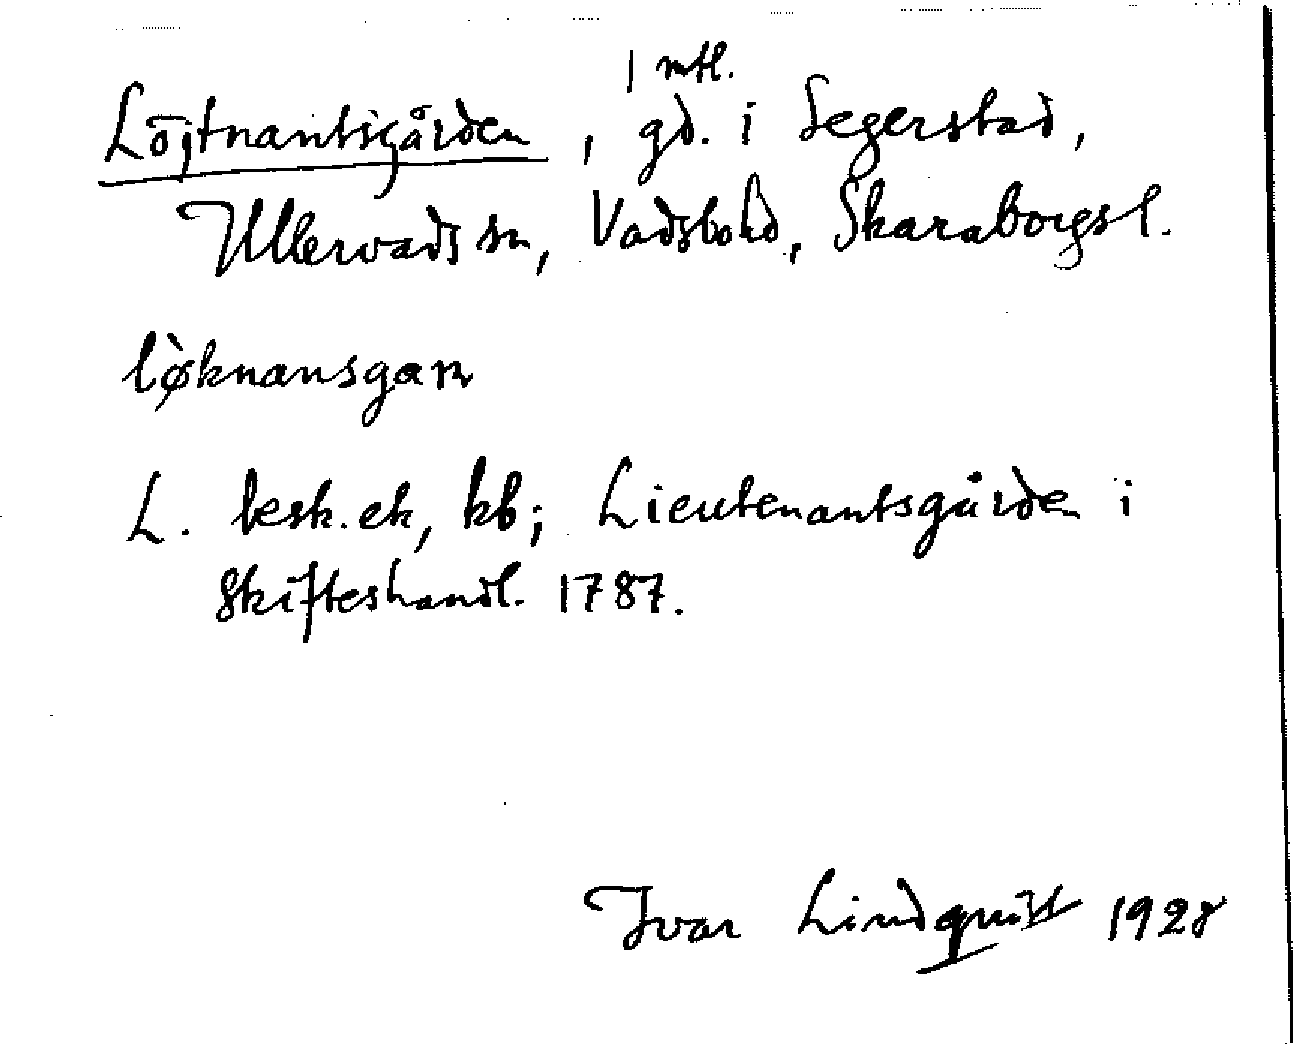 Löjtnantsgården, 1 mtl. gd. i Segerstad,
Ullervads sn, Vadsbohd, Skaraborgsl.
lø̀knansgaɳ
L. besk. ek, kb; Lieutenantsgården i
Skifteshandl. 1787.
Ivar Lindquist 1928